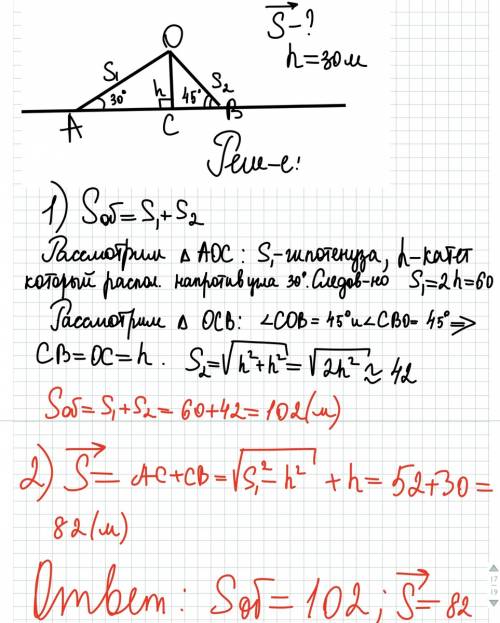 S⃗ – ?
h = 30м
O
S₁
S₂
30°
h
45°
A
C
B
Реш-е:
1) Sоб = S₁ + S₂
Рассмотрим △ AOC : S₁ - гипотенуза, h - катет
который распол. напротив угла 30°. Следов-но S₁ = 2h = 60
Рассмотрим △ OCB : ∠COB = 45° и ∠CBO = 45° ⇒
CB = OC = h . S₂ = √(h² + h²) = √(2h²) ≈ 42
Sоб = S₁ + S₂ = 60 + 42 = 102 (м)
2) S⃗ = AC + CB = √(S₁² – h²) + h = 52 + 30 =
82 (м)
Ответ : Sоб = 102 ; S⃗ – 82
17
19